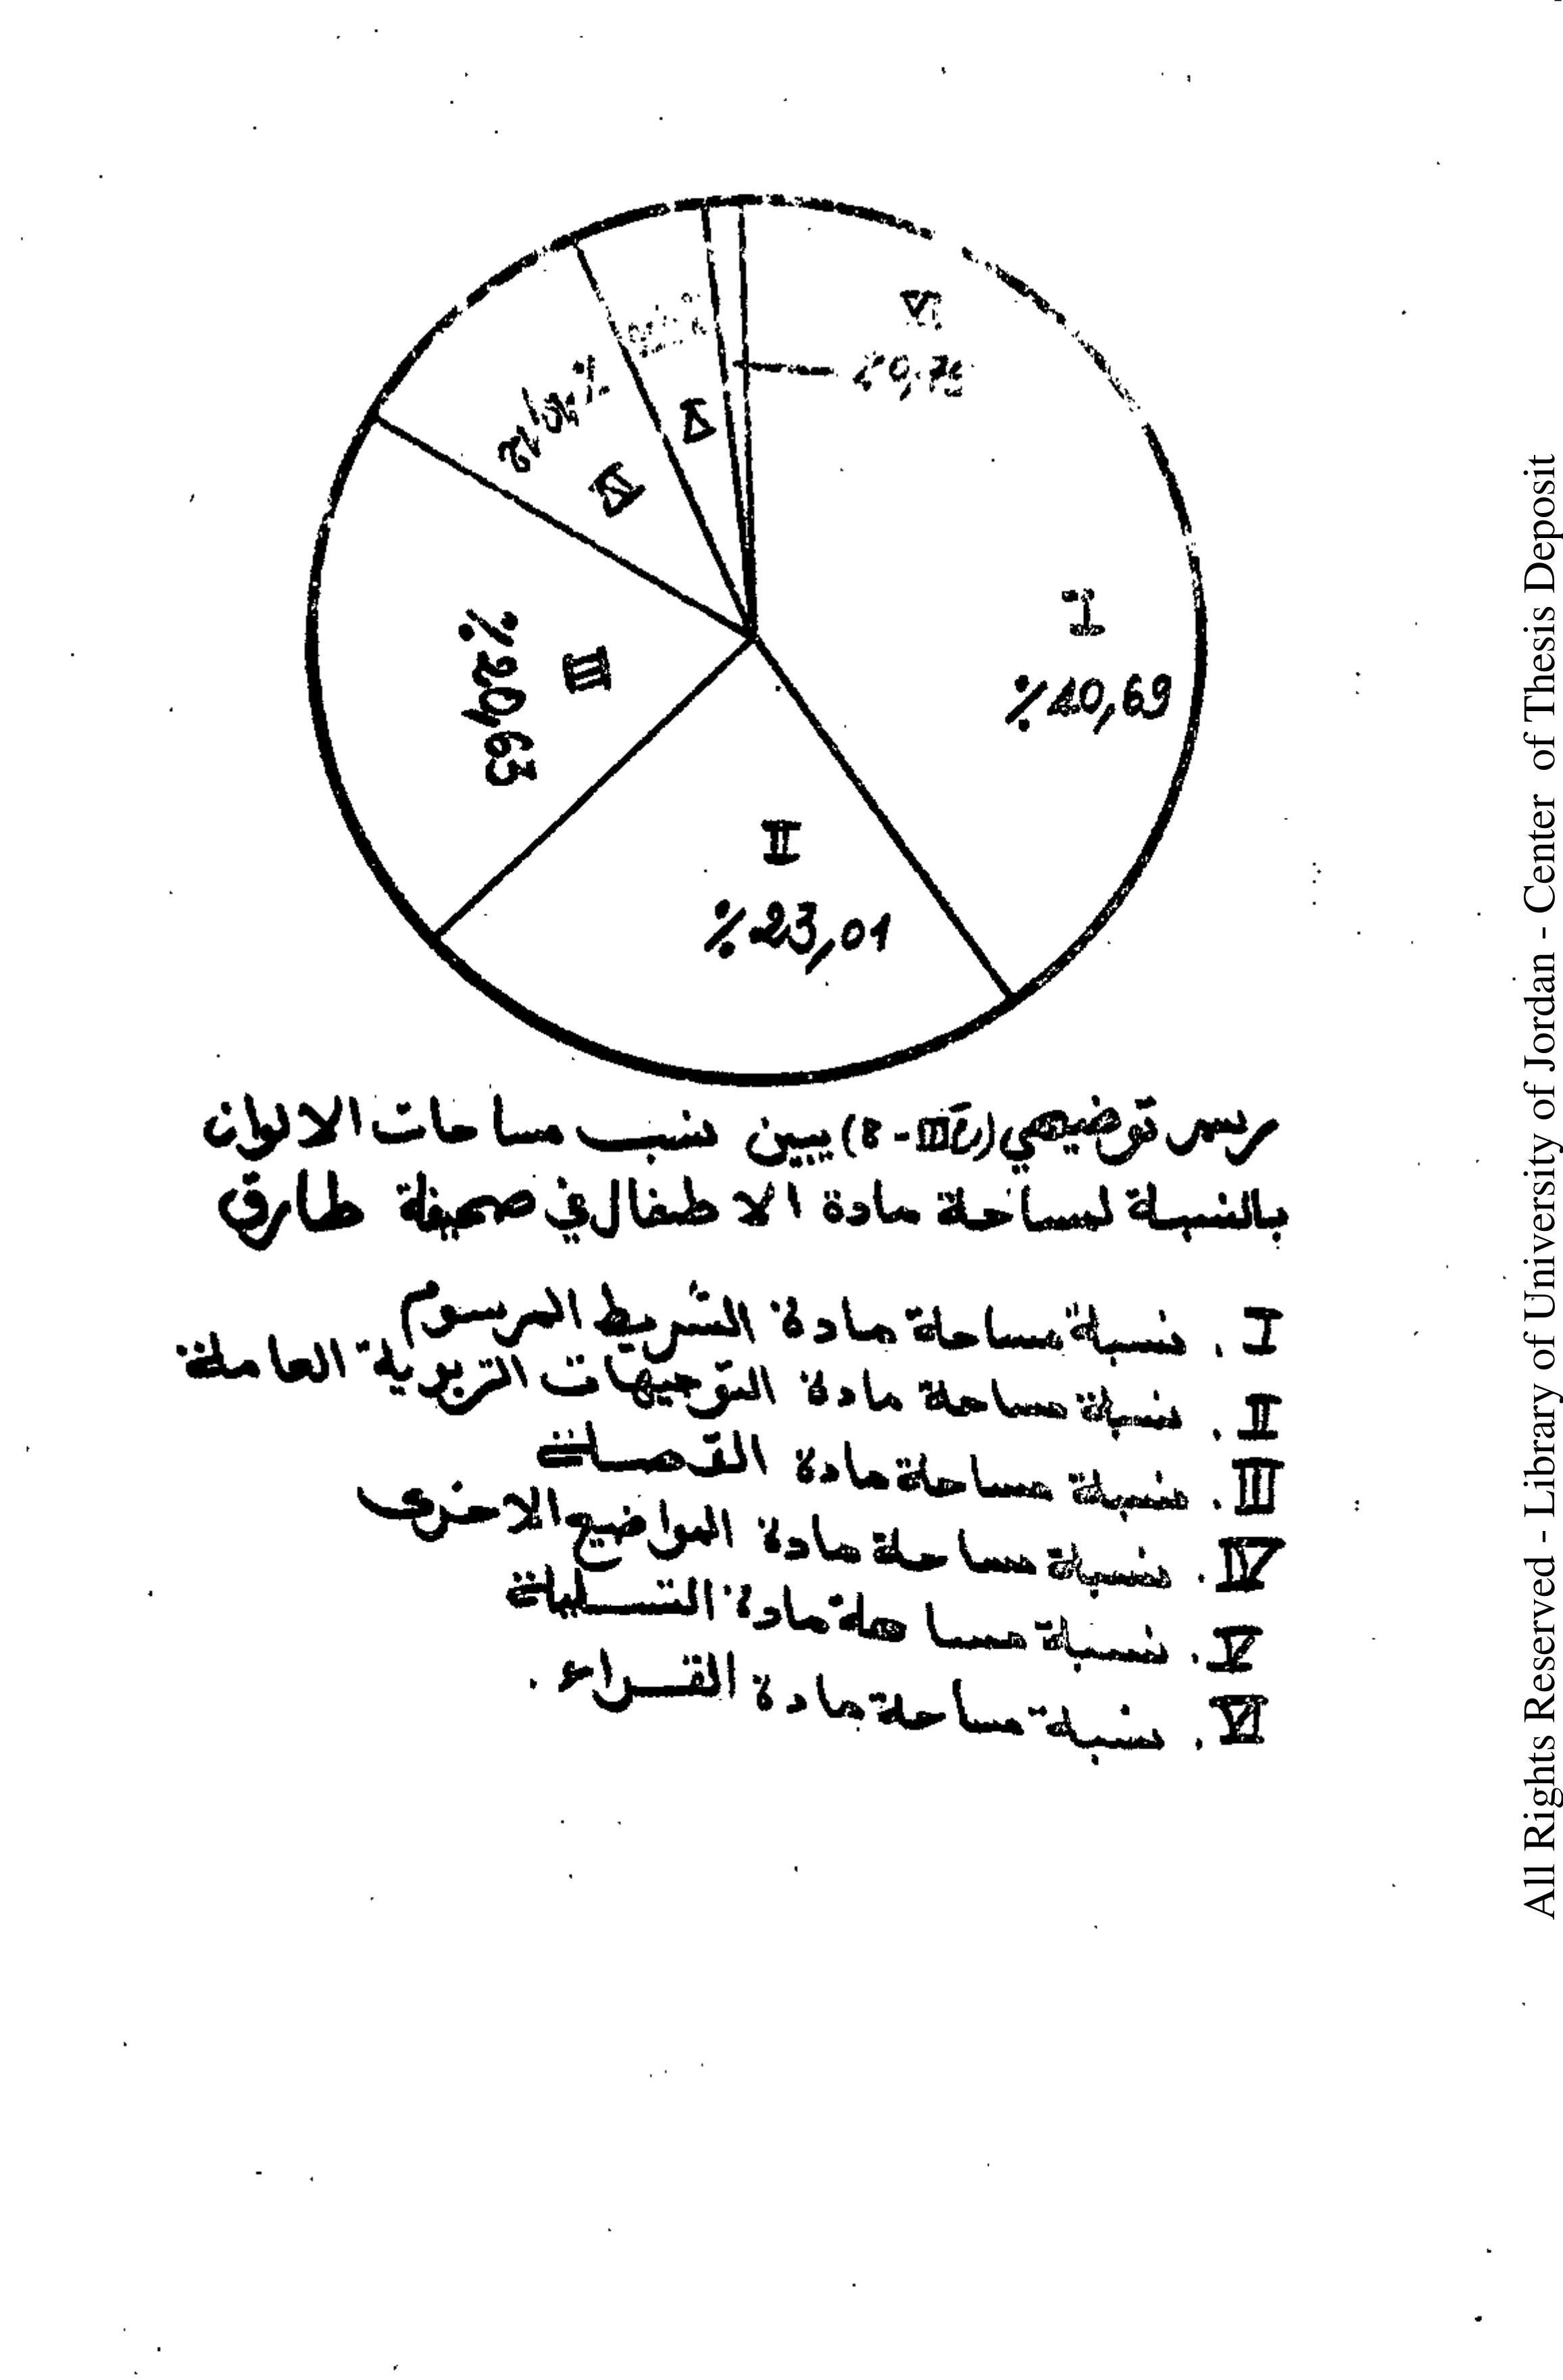 VI
%0,75
V
%10,12
IV
I
%40,69
%20,63
III
II
%23,01
رسم توضيحي (رقم III - 8) يبين نسب مساحات الالوان
بالنسبة لمساحة مادة الاطفال في صحيفة طارق
I . نسبة مساحة مادة الشريط المرسوم
II . نسبة مساحة مادة التوجيهات التربوية العاملة
III . نسبة مساحة مادة القصة
IV . نسبة مساحة مادة المواضيع الاخرى
V . نسبة مساحة مادة التسلية
VI . نسبة مساحة مادة القراء .
All Rights Reserved - Library of University of Jordan - Center of Thesis Deposit